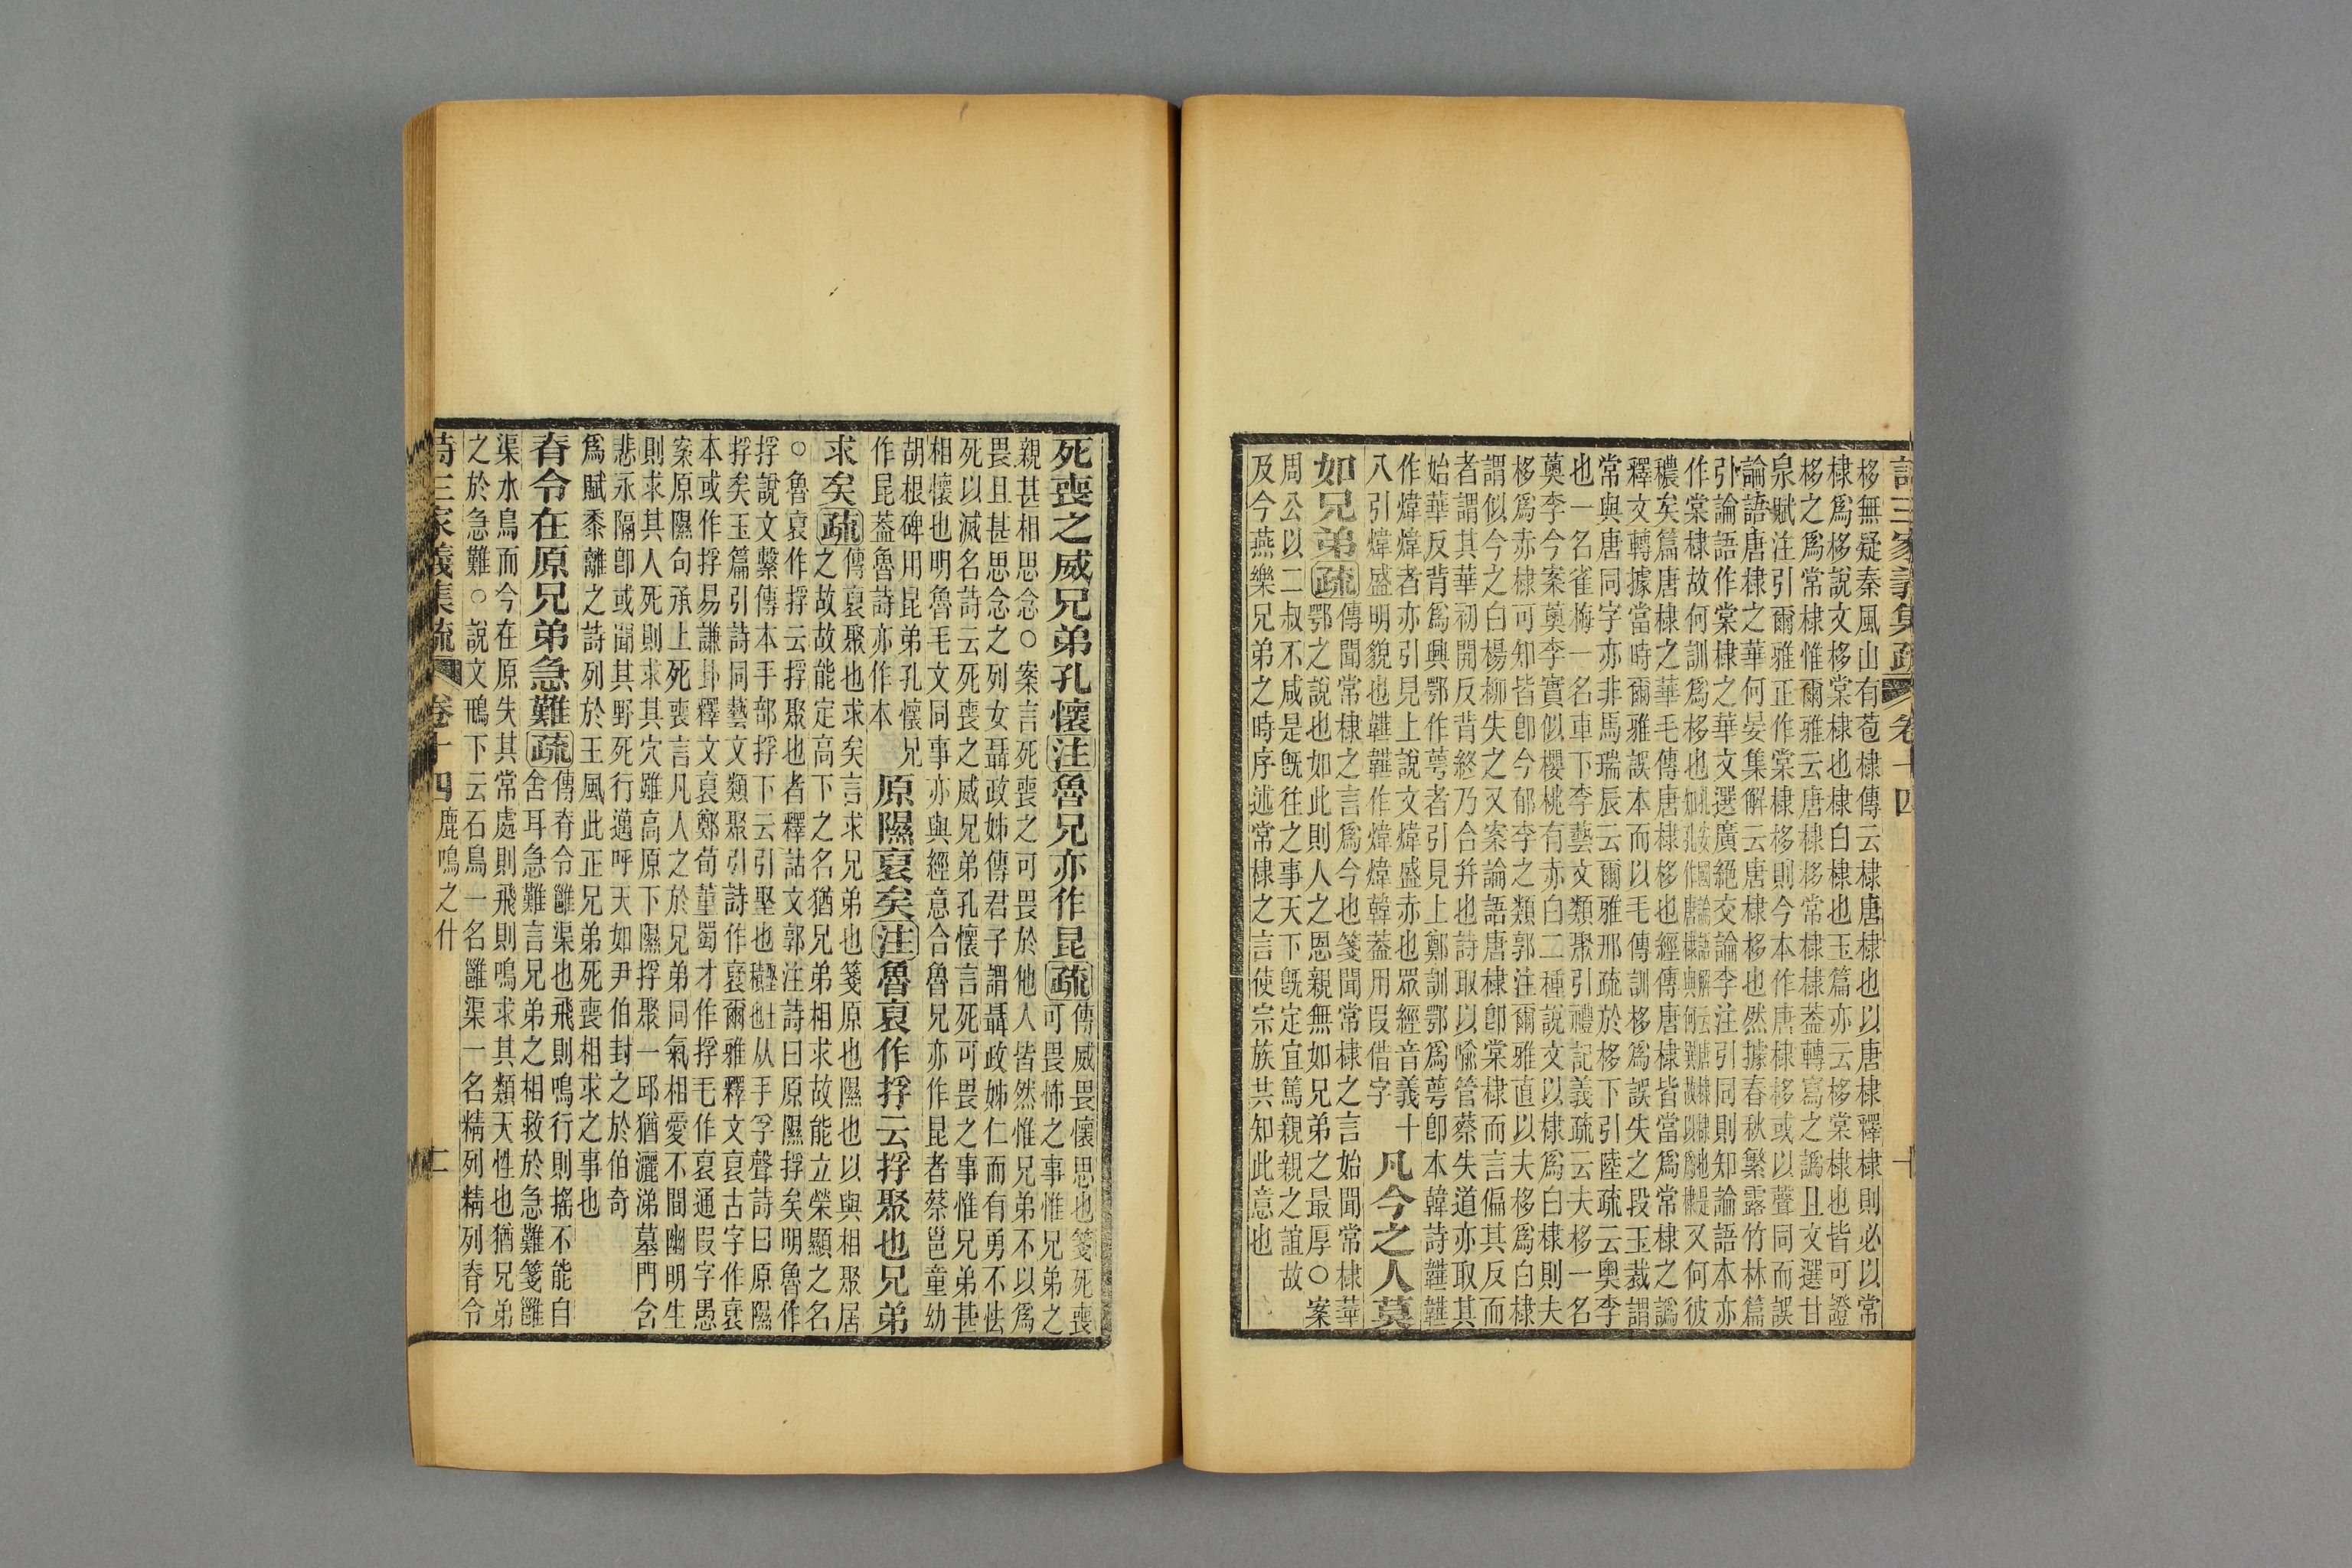 詩三家義集疏 卷十四
栘無疑秦風山有苞棣傳云棣唐棣也以唐棣釋棣則必以常
棣爲栘說文栘棠棣也棣白棣也玉篇亦云栘棠棣也皆可證
栘之爲常棣惟爾雅云唐棣栘常棣棣葢轉寫之譌且文選甘
泉賦注引爾雅正作棠棣栘則今本作唐棣栘或以聲同而誤
論語唐棣之華何晏集解云唐棣栘也然據春秋繁露竹林篇
引論語作棠棣之華文選廣絕交論李注引同則知論語本亦
作棠棣故何訓爲栘也又何彼
穠矣篇唐棣之華毛傳唐棣栘也經傳唐棣皆當爲常棣之譌
釋文轉據當時爾雅誤本而以毛傳訓栘爲誤失之段玉裁謂
常與唐同字亦非馬瑞辰云爾雅邢疏於栘下引陸疏云奧李
也一名雀梅一名車下李藝文類聚引禮記義疏云夫栘一名
薁李今案薁李實似櫻桃有赤白二種說文以棣爲白棣則夫
栘爲赤棣可知皆卽今郁李之類郭注爾雅直以夫栘爲白棣
謂似今之白楊柳失之又案論語唐棣卽棠棣而言偏其反而
者謂其華初開反背終乃合幷也詩取以喻管蔡失道亦取其
始華反背爲興鄂作萼者引見上鄭訓鄂爲萼卽本韓詩韡韡
作煒煒者亦引見上說文煒盛赤也眾經音義十
八引煒盛明貌也韡韡作煒煒韓葢用叚借字
凡今之人莫
如兄弟疏傳聞常棣之言爲今也箋聞常棣之言始聞常棣華
鄂之說也如此則人之恩親無如兄弟之最厚○案
周公以二叔不咸是旣往之事天下旣定宜篤親親之誼故
及今燕樂兄弟之時序述常棣之言使宗族共知此意也
死喪之威兄弟孔懷注魯兄亦作昆疏傳威畏懷思也箋死喪
可畏怖之事惟兄弟之
親甚相思念○案言死喪之可畏於他人皆然惟兄弟不以爲
畏且甚思念之列女聶政姊傳君子謂聶政姊仁而有勇不怯
死以滅名詩云死喪之威兄弟孔懷言死可畏之事惟兄弟甚
相懷也明魯毛文同事亦與經意合魯兄亦作昆者蔡邕童幼
胡根碑用昆弟孔懷兄
作昆葢魯詩亦作本
原隰裒矣注魯裒作捊云捊聚也兄弟
求矣疏傳裒聚也求矣言求兄弟也箋原也隰也以與相聚居
之故故能定高下之名猶兄弟相求故能立榮顯之名
○魯裒作捊云捊聚也者釋詁文郭注詩曰原隰捊矣明魯作
捊說文繫傳本手部捊下云引堅也從手孚聲詩曰原隰
捊矣玉篇引詩同藝文類聚引詩作裒爾雅釋文裒古字作裒
本或作捊易謙卦釋文裒鄭荀董蜀才作捊毛作裒通叚字愚
案原隰句承上死喪言凡人之於兄弟同氣相愛不間幽明生
則求其人死則求其穴雖高原下隰捊聚一邱猶灑涕墓門含
悲永隔卽或聞其野死行邁呼天如尹伯封之於伯奇
爲賦黍離之詩列於王風此正兄弟死喪相求之事也
脊令在原兄弟急難疏傳脊令雝渠也飛則鳴行則搖不能自
舍耳急難言兄弟之相救於急難箋雝
渠水鳥而今在原失其常處則飛則鳴求其類天性也猶兄弟
之於急難○說文䳭下云石鳥一名雝渠一名精列精列脊令
詩三家義集疏 卷十四 鹿鳴之什 二